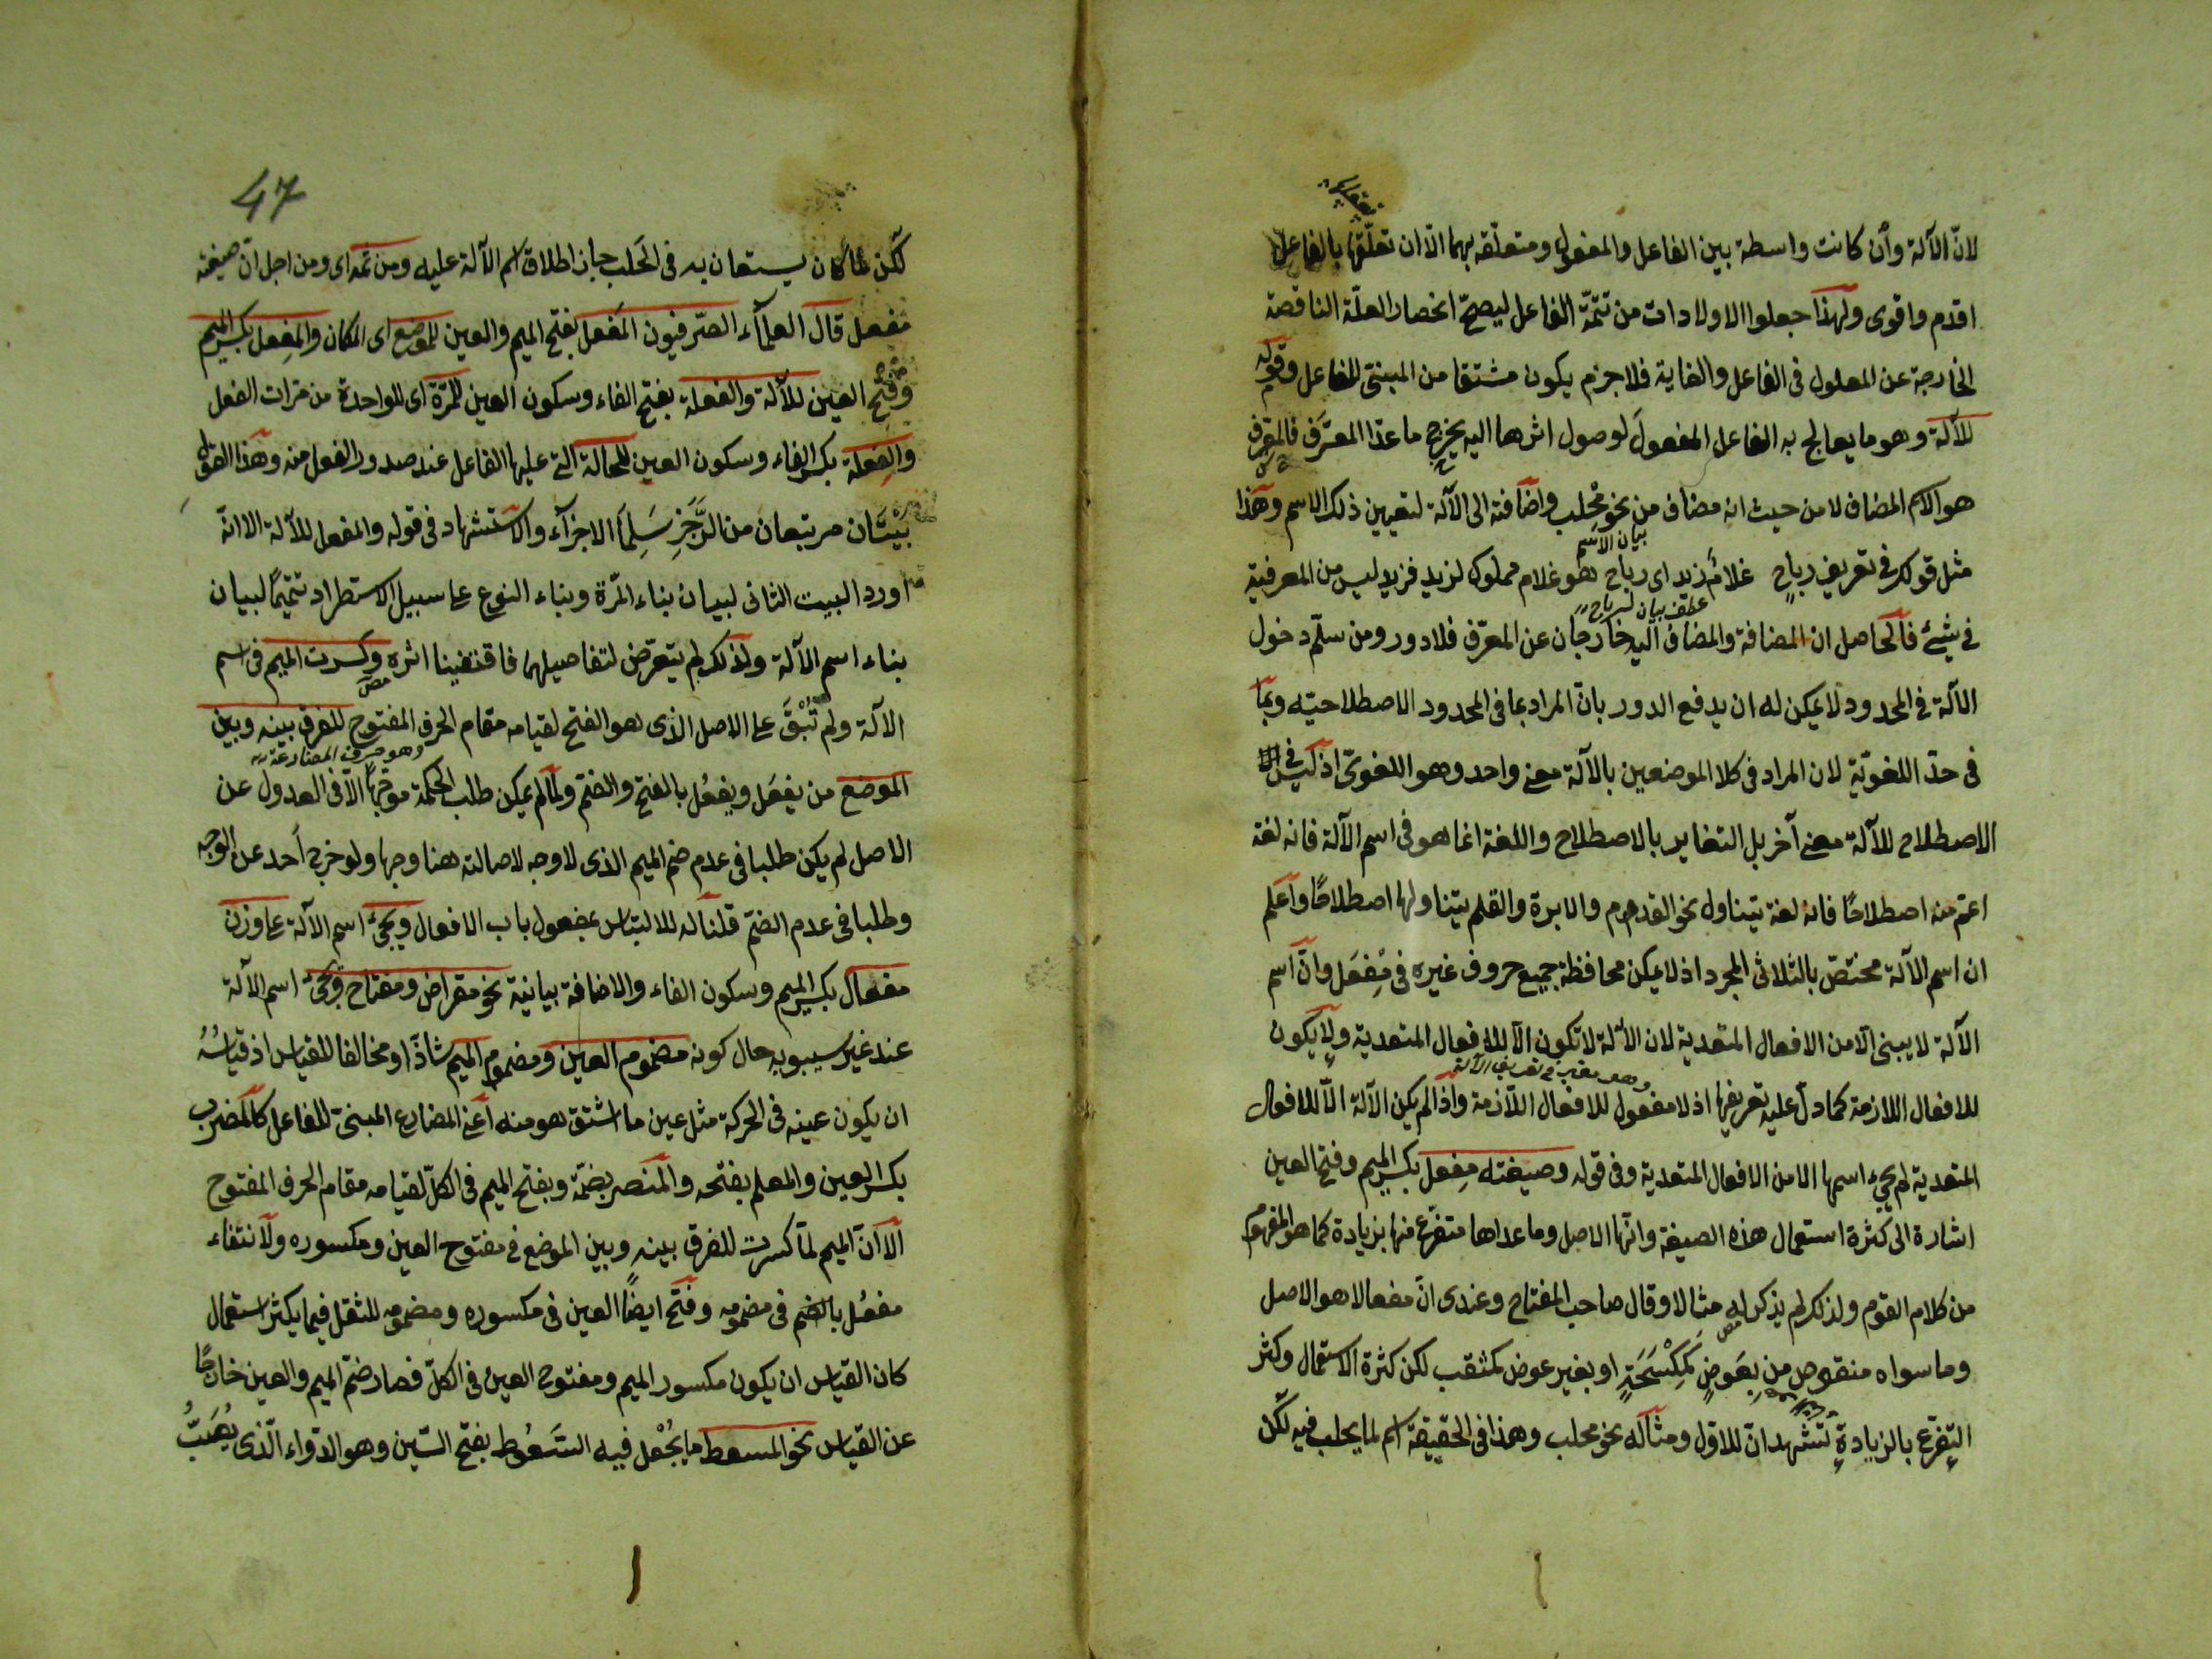 لانّ الآلة وأن كانت واسطة بين الفاعل والمفعول ومتعلّقه بهما الّا ان تعلّقها بالفاعل
اقدم واقوى ولهذا جعلوا الاولادات من تتمّة الفاعل ليصحّ انحصار العلّة الناقصة
الخارجة عن المعلول فى الفاعل والغاية فلا جرم يكون مشتقا من المبنىّ للفاعل وقوله
للآلة وهو ما يعالج به الفاعل المفعولَ لوصول اثرها اليه يخرج ما عدا المعرَّف فالمعرف
هو الاسم المضاف لا من حيث انه مضاف من نحو مِحْلب واضافته الى الآلة لتعيين ذلك الاسم وهذا
بيان الاسم
مثل قولك فى تعريف رباحٍ غلامُ زيد اى رباح هو غلام مملوك لزيد فزيد ليس من المعرفية
عطف بيان لرباح
فى شيئ فالحاصل ان المضافة والمضاف اليه خارجان عن المعرّف فلا دور ومن سلّم دخول
الآلة فى المحدود لا يمكن له ان يدفع الدور بانّ المراد بما فى المحدود الاصطلاحيّه وبما
فى حدّ اللغويّة لان المراد فى كلا الموضعين بالآلة معنى واحد وهو اللغوىّ اذ ليس فى
الاصطلاح للآلة معنى آخر بل التغاير بالاصطلاح واللغة انما هو فى اسم الآلة فانه لغة
اعمّ منه اصطلاحًا فانه لغة يتناول نحو القدوم والابرة والقلم يتناولها اصطلاحًا واعلم
ان اسم الآلة مختصّ بالثلاثى المجرد اذ لا يمكن محافظة جميع حروف غيره فى مِفعَل وانّ اسم
الآلة لا يبنى الّا من الافعال المتعدية لان الآلة لا تكون الّا للافعال المتعدية ولا يكون
للافعال اللازمة كما دلّ عليه تعريفها اذ لا مفعول للافعال اللّازمة واذا لم يكن الآلة الّا للافعال
المتعدية لم يجئ اسمها الا من الافعال المتعدية وفى قوله وصيغته مِفعل بكسر الميم وفتح العين
اشارة الى كثرة استعمال هذه الصيغة وانّها الاصل وما عداها متفرّع منها بزيادة كما هو المفهوم
من كلام القوم ولذلك لم يذكر له مثالا وقال صاحب المفتاح وعندى انّ مفعالا هو الاصل
وما سواه منقوص منه بِعَوضٍ كمِكْسَحَةٍ او بغير عوض كمثقب لكن كثرة الاستعمال وكثر
التفرّع بالزيادةِ تشهدان للاوّل ومثاله نحو محلب وهذا فى الحقيقة اسم لما يحلب فيه لكن
47
لكن لمّا كان يستعان به فى الحَلب جاز اطلاق اسم الآلة عليه ومن ثمّه اى ومن اجل انّ صيغته
مفعل قال العلمآء الصّرفيون المَفعل بفتح الميم والعين للموضع اى المكان والمِفعل بكسر الميم
وفتح العين للآلة والفعلة بفتح الفاء وسكون العين للمرّة اى للواحدة من مرّات الفعل
والفِعلة بكسر الفاء وسكون العين للحالة التى عليها الفاعل عند صدور الفعل منه وهذا القول
بيتان مربّعان من الرَّجَزِ سَلِما الاجزآء والاستشهاد فى قوله والمفعل للآلة الا انّه
اورد البيت الثانى لبيان بناء المّرة وبناء النوع على سبيل الاستطراد تتميمًا لبيان
بناء اسم الآلة ولذلك لم يتعرّض لتفاصيلهما فاقتفينا اثره وكسرت الميم فى اسم
الآلة ولم تُبْقَ على الاصل الذى هو الفتح لقيامه مقام الحرف المفتوح للفرق بينه وبين
وهو حرف المضارعة
الموضع من يفعَل ويفعُل بالفتح والضمّ ولمّا لم يمكن طلب الحكمة موجّهاً الّا فى العدول عن
الاصل لم يكن طلبها فى عدم ضم الميم الذى لا وجه لاصالته هنا وجها ولو خرج احد عن الوجه
وطلبها فى عدم الضمّ قلنا له للالتباس بمفعول باب الافعال ويجئ اسم الآلة على وزن
مفعال بكسر الميم وسكون الفاء والاضافة بيانية نحو مقراض ومفتاح ويجئ اسم الآلة
عند غير سيبويه حال كونه مضموم العين ومضموم الميم شاذّا ومخالفا للقياس اذ قياسُهُ
ان يكون عينه فى الحركة مثل عين ما اشتق هو منه اعنى المضارع المبنىّ للفاعل كالمضرب
بكسر العين والمعلم بفتحه والمنصر بضمّه وبفتح الميم فى الكلّ لقيامه مقام الحرف المفتوح
الّا انّ الميم لمّا كسرت للفرق بينه وبين الموضع فى مفتوح العين ومكسوره ولانتفاء
مفعُل بالضم فى مضمومه وفتح ايضًا العين فى مكسوره ومضمومه للثقل فيما يكثر استعمال
كان القياس ان يكون مكسور الميم ومفتوح العين فى الكلّ فصار ضمّ الميم والعين خارجًا
عن القياس نحو المسعط ما يُجْعل فيه السَّعُوط بفتح السّين وهو الدّواء الّذى يُصَبُّ